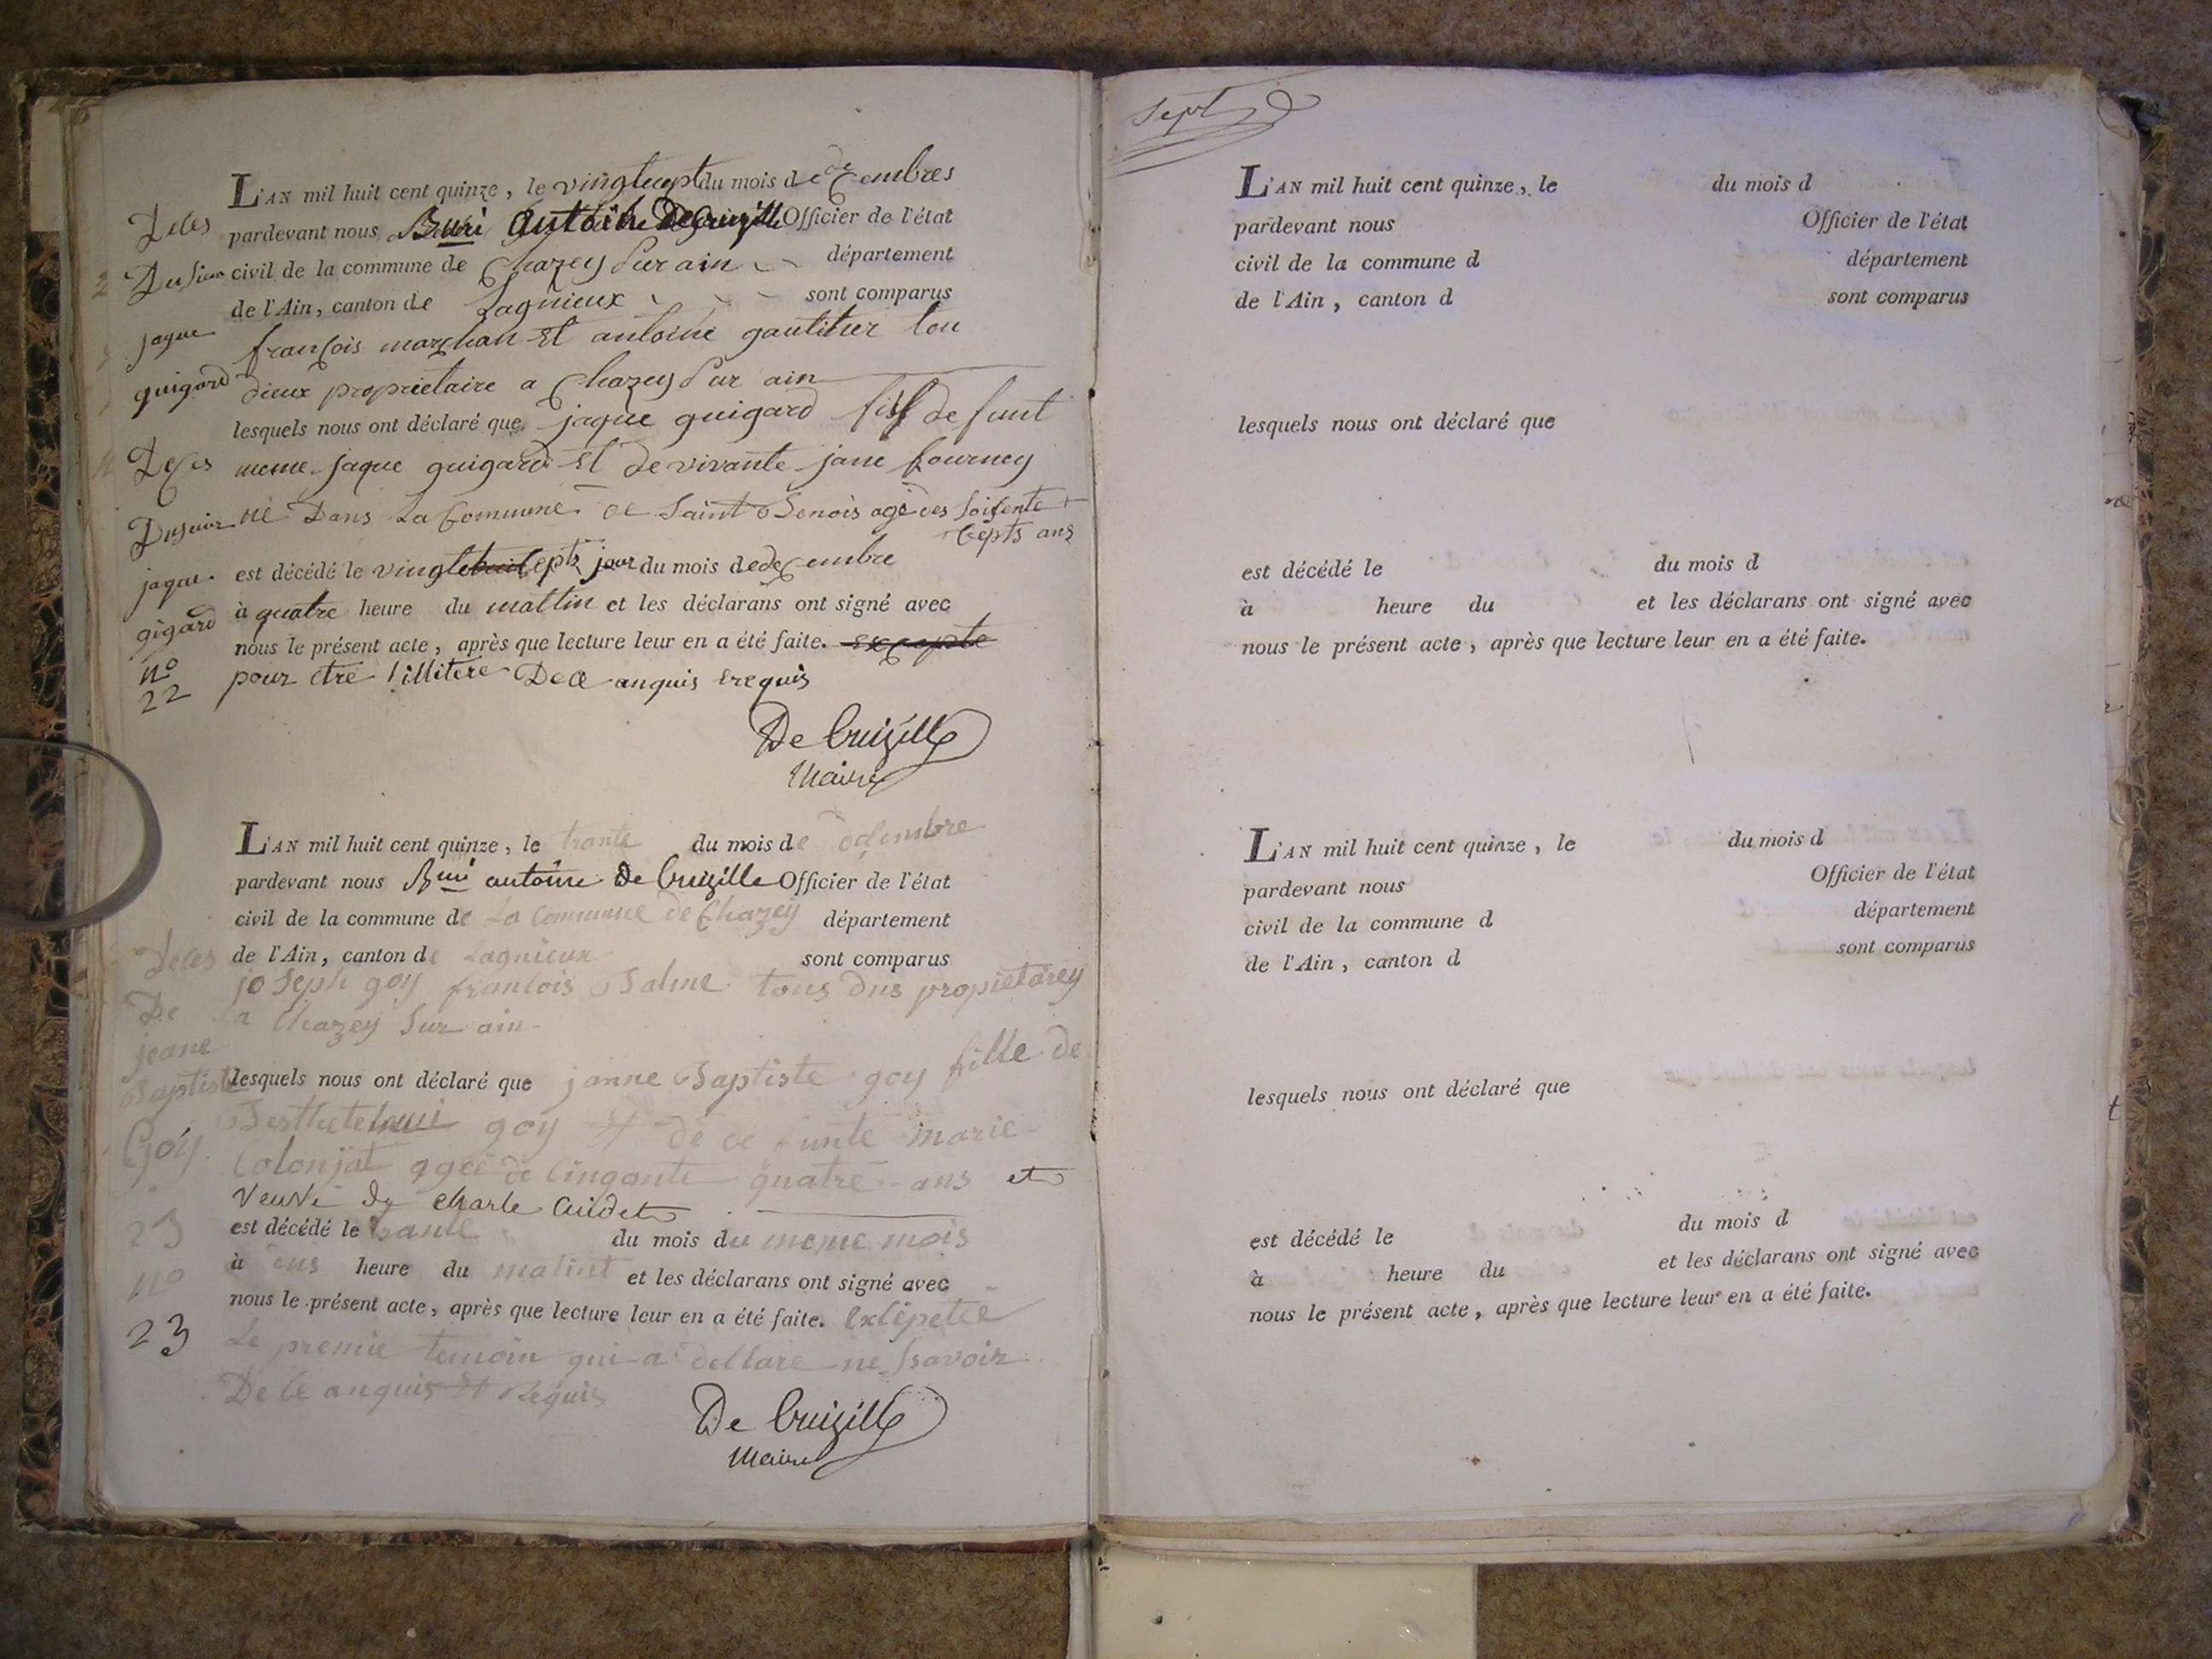 L'AN mil huit cent quinze, le vingtsept du mois de decembres
pardevant nous Buri antoine De Cruzille Officier de l'état
civil de la commune de Chazey Sur ain département
de l'Ain, canton de Lagnieux sont comparus
françois marchan Et antoine
dieux proprietaire a Chazey Sur ain
lesquels nous ont déclaré que jaque guigard fils de funt
meme jaque guigard Et de vivante jane fourney
né Dans La Commune de Saint Benois agé des soisente
septs ans
est décédé le vingt septs jour du mois de decembre
à quatre heure du mattin et les déclarans ont signé avec
nous le présent acte, après que lecture leur en a été faite. excepte
pour etre illitere De ce anquis Erequis
De Cruzille
Maire
Deces
jaque
guigard
Deces
jaque
gigard
n°
22
L'AN mil huit cent quinze, le trante du mois de decembre
pardevant nous Buri antoine De Cruzille Officier de l'état
civil de la commune de La Commune de Chazey département
de l'Ain, canton de Lagnieux sont comparus
joseph goy francois Balme tous dus propietarey
a Chazey Sur ain
lesquels nous ont déclaré que janne Baptiste goy fille de
goy Et de de funte marie
Colonjat agée de Cinqante quatre ans et
veuve de charle Cuidet
est décédé le trante du mois du meme mois
à dus heure du matint et les déclarans ont signé avec
nous le présent acte, après que lecture leur en a été faite. Exsepete
Le premie temoin qui a dellare ne ssavoir
De Ce anquis Et Requis
De Cruzille
Maire
Deces
De
jeane
Baptiste
Goy
23
n°
23
Sept
L'AN mil huit cent quinze, le du mois d
pardevant nous Officier de l'état
civil de la commune d département
de l'Ain, canton d sont comparus
lesquels nous ont déclaré que
est décédé le du mois d
à heure du et les déclarans ont signé avec
nous le présent acte, après que lecture leur en a été faite.
L'AN mil huit cent quinze, le du mois d
pardevant nous Officier de l'état
civil de la commune d département
de l'Ain, canton d sont comparus
lesquels nous ont déclaré que
est décédé le du mois d
à heure du et les déclarans ont signé avec
nous le présent acte, après que lecture leur en a été faite.